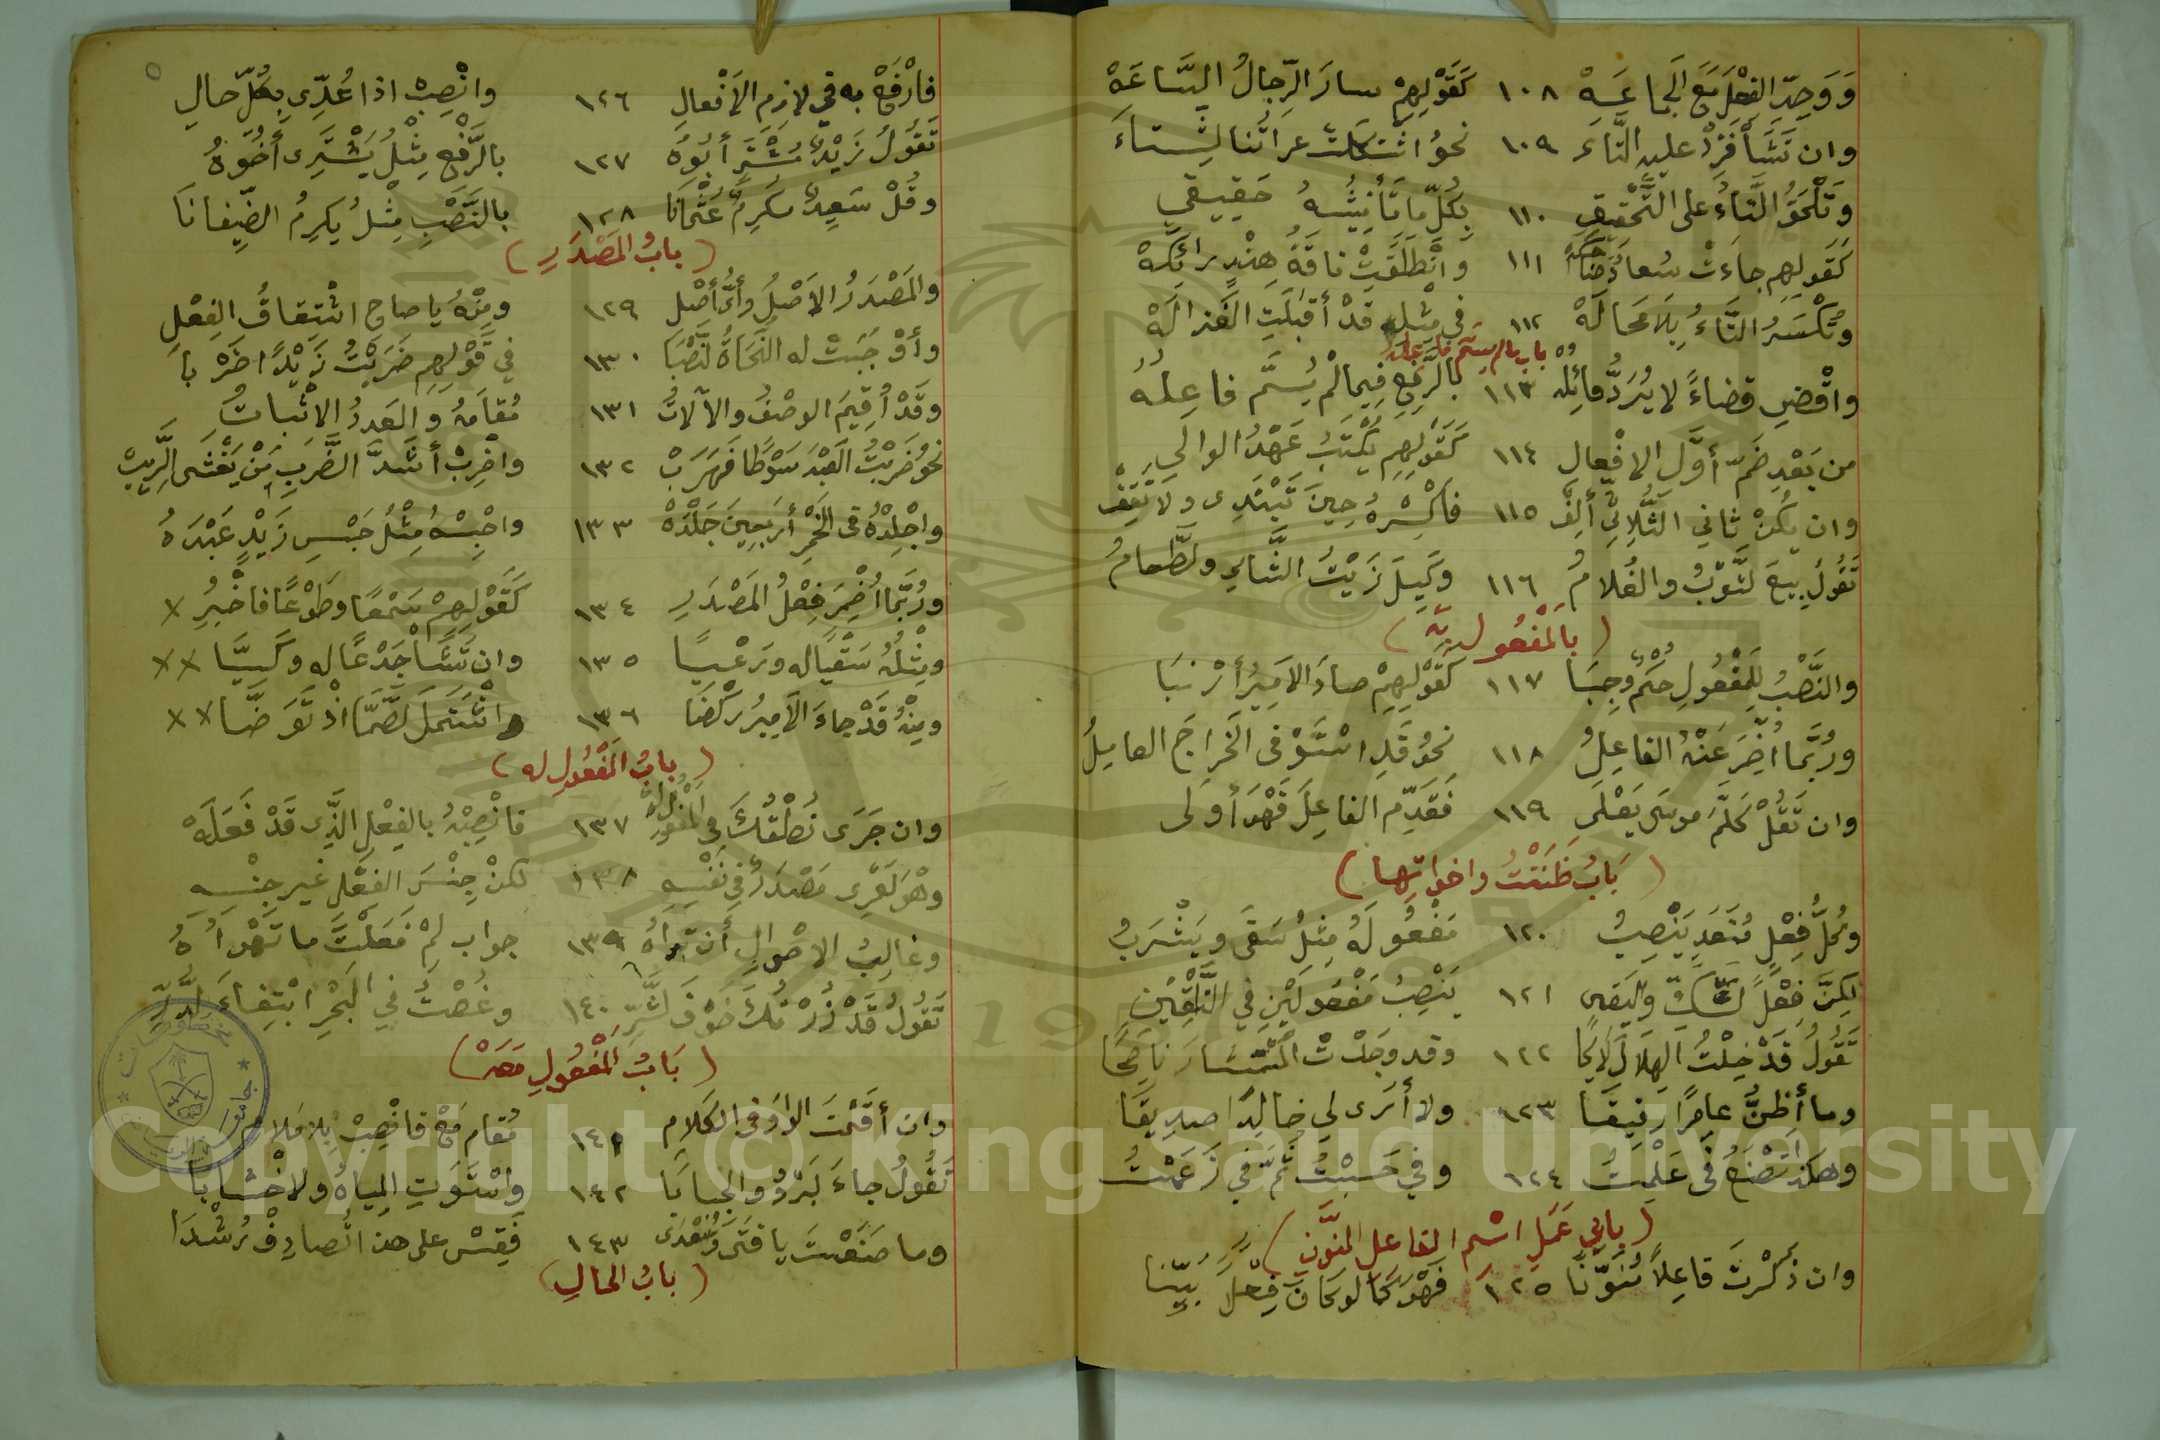 وَوَحِّدِ الفِعْلَ مَعَ الجَماعَهْ ١٠٨ كَقَوْلِهِمْ سارَ الرِّجالُ السَّاعَهْ
وان تَشَأْ فَزِدْ عليه التَّاءَ ١٠٩ نحوُ اشْتَكَتْ عراتُنا الشِّتاءَ
وتَلْحَقُ التَّاءُ على التَّحْقيقِ ١١٠ بِكُلِّ ما تَأْنِيثُهُ حَقِيقي
كَقَولِهِم جاءَتْ سُعادُ ضاحِكَهْ ١١١ وانْطَلَقَتْ ناقَةُ هِنْدٍ راتِكَهْ
وتُكْسَرُ التَّاءُ بِلا مَحَالَهْ ١١٢ في مِثْلِ قَدْ أَقْبَلَتِ الغَزالَهْ
باب مالم يسمّ فاعله
واقْضِ قضاءً لا يُرَدُّ قائِلُهْ ١١٣ بالرَّفْعِ فِيما لَمْ يُسَمَّ فاعِلُهْ
من بَعْدِ ضَمِّ أوَّلِ الافْعالِ ١١٤ كَقَولِهِم يُكْتَبُ عَهْدُ الوالي
وان يكُنْ ثاني الثُّلاثِيِّ أَلِفْ ١١٥ فاكْسِرْهُ حِينَ تَبْتَدِي ولا تَقِفْ
تَقُولُ بِيعَ الثَّوْبُ والغُلامُ ١١٦ وكِيلَ زَيْتُ الشَّامِ والطَّعامُ
(بالمَفْعُولِيَّة)
والنَّصْبُ لِلمَفْعُولِ حُكْمٌ وَجَبَا ١١٧ كَقَوْلِهِمْ صادَ الاَمِيرُ أَرْنَبَا
ورُبَّما أُخِّرَ عَنْهُ الفاعِلُ ١١٨ نحوُ قَدِ اسْتَوْفى الخَراجَ العامِلُ
وان تَقُلْ كَلَّمَ موسى يَعْلَى ١١٩ فَقَدِّم الفاعِلَ فَهْوَ أَولى
(بَابُ ظَنَنْتُ واخواتِها)
وكُلُّ فِعْلٍ مُتَعَدٍّ يَنْصِبُ ١٢٠ مَفْعُولَهُ مِثْلُ سَقَى ويَشْرَبُ
لكِنَّ فِعْلَ الشَّكِّ واليَقينِ ١٢١ يَنْصِبُ مَفْعُولَيْنِ في التَّلْقِينِ
تَقُولُ قَدْ خِلْتُ الهِلالَ لائِحَا ١٢٢ وقد وَجَدْتُ المُسْتَشارَ ناصِحَا
وما أَظُنُّ عامِرًا رَفِيقَا ١٢٣ ولا أَرَى لي خالِدًا صدِيقَا
وهكَذا تَصْنَعُ فى عَلِمْتُ ١٢٤ وفي حَسِبْتُ ثُمَّ في زَعَمْتُ
(باب عَمَلِ اسْمِ الفاعلِ المنَوَّنِ)
وان ذَكَرْتَ فاعِلاً مُنَوَّنَا ١٢٥ فَهْوَ كَما لو كَانَ فِعْلاً بَيِّنا
فارْفَعْ به في لازِمِ الاَفْعالِ ١٢٦ وانْصِبْ اذا عُدِّي بِكُلِّ حالِ
تَقُولُ زَيْدٌ مُشْتَرٍ أَبُوهُ ١٢٧ بالرَّفْعِ مِثْلُ يَشْتَرِى أَخُوهُ
وقُلْ سَعِيدٌ مُكْرِمٌ عُثْمانَا ١٢٨ بالنَّصْبِ مِثْلُ يُكرِمُ الضِّيفانَا
(بابُ المَصْدَرِ)
والمَصْدَرُ الاَصْلُ وأَيُّ أَصْلِ ١٢٩ ومِنْهُ يا صاحِ اشْتِقاقُ الفِعْلِ
وأَوْجَبَتْ له النُّحَاةُ النَّصْبَا ١٣٠ في قَوْلِهِم ضَرَبْتُ زَيْدًا ضَرْبَا
وقَدْ أُقِيمَ الوصْفُ والآلاتُ ١٣١ مُقامَهُ والعَددُ الاثْباتُ
نحوُ ضَرَبْتُ العَبْدَ سَوْطًا فَهَرَبْ ١٣٢ واضْرِبْ أَشَدَّ الضَّربِ مَنْ يَغْشَى الرِّيَبْ
واجْلِدْهُ فى الخَمْرِ أَربَعِينَ جَلْدَهْ ١٣٣ واحْبِسْهُ مِثْلَ حَبْسِ زَيْدٍ عَبْدَهُ
ورُبَّما أُضْمِرَ فِعْلُ المَصْدَرِ ١٣٤ كَقَوْلِهِمْ سَمْعًا وطَوْعًا فاخْبُرِ ×
ومِثْلُهُ سَقْيًا له ورَعْيَا ١٣٥ وان تَشَأْ جَدْعًا له وكَيَّا ××
ومِنْهُ قَدْ جاءَ الاَمِيرُ رَكْضَا ١٣٦ واشْتَمَلَ الصَّمَّا اذْ تَوَضَّا ××
(بابُ المَفْعُولِ له)
وان جَرَى نُطْقُكَ في المَفْعُولِ لَهْ ١٣٧ فانْصِبْهُ بالفِعْلِ الَّذِي قَدْ فَعَلَهْ
وهْوَ لَعَمْرِى مَصْدَرٌ في نَفْسِهِ ١٣٨ لكنْ جِنْسَ الفِعْلِ غير جِنْسِهِ
وغالِبُ الاحْوالِ أن تَراهُ ١٣٩ جواب لِمْ فَعَلْتَ ما تَهْواهُ
تَقُولُ قَدْ زُرْتُكَ خَوْفَ الشَّرِّ ١٤٠ وغُصْتُ في البَحْرِ ابْتِغاءَ الدُّرِّ
(بَابُ المَفْعُولِ مَعَهْ)
وان أَقَمْتَ الواوَ فى الكَلامِ ١٤١ مُقام مَعْ فانْصِبْ بِلا مَلامِ
تَقُولُ جاءَ البَرْدُ والجِبابَا ١٤٢ واسْتَوَتِ المِياهُ والاخْشابَا
وما صَنَعْتَ يا فَتى وسُعْدَى ١٤٣ فَقِسْ على هذا تُصادِفْ رُشْدَا
(بابُ الحالِ)
Copyright © King Saud University